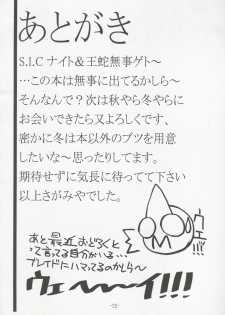 あとがき
S.I.Cナイト&王蛇無事ゲト~
…この本は無事に出てるかしら~
そんなんで?次は秋やら冬やらに
お会いできたら又よろしくです、
密かに冬は本以外のブツを用意
したいな~思ったりしてます。
期待せずに気長に待ってて下さい
以上さがみやでした。
ウェーイ
あと最近おどろくと
って言ってる自分がいる…
ブレイドにハマってるのかしら~
ウェ~~イ!!!
-32-